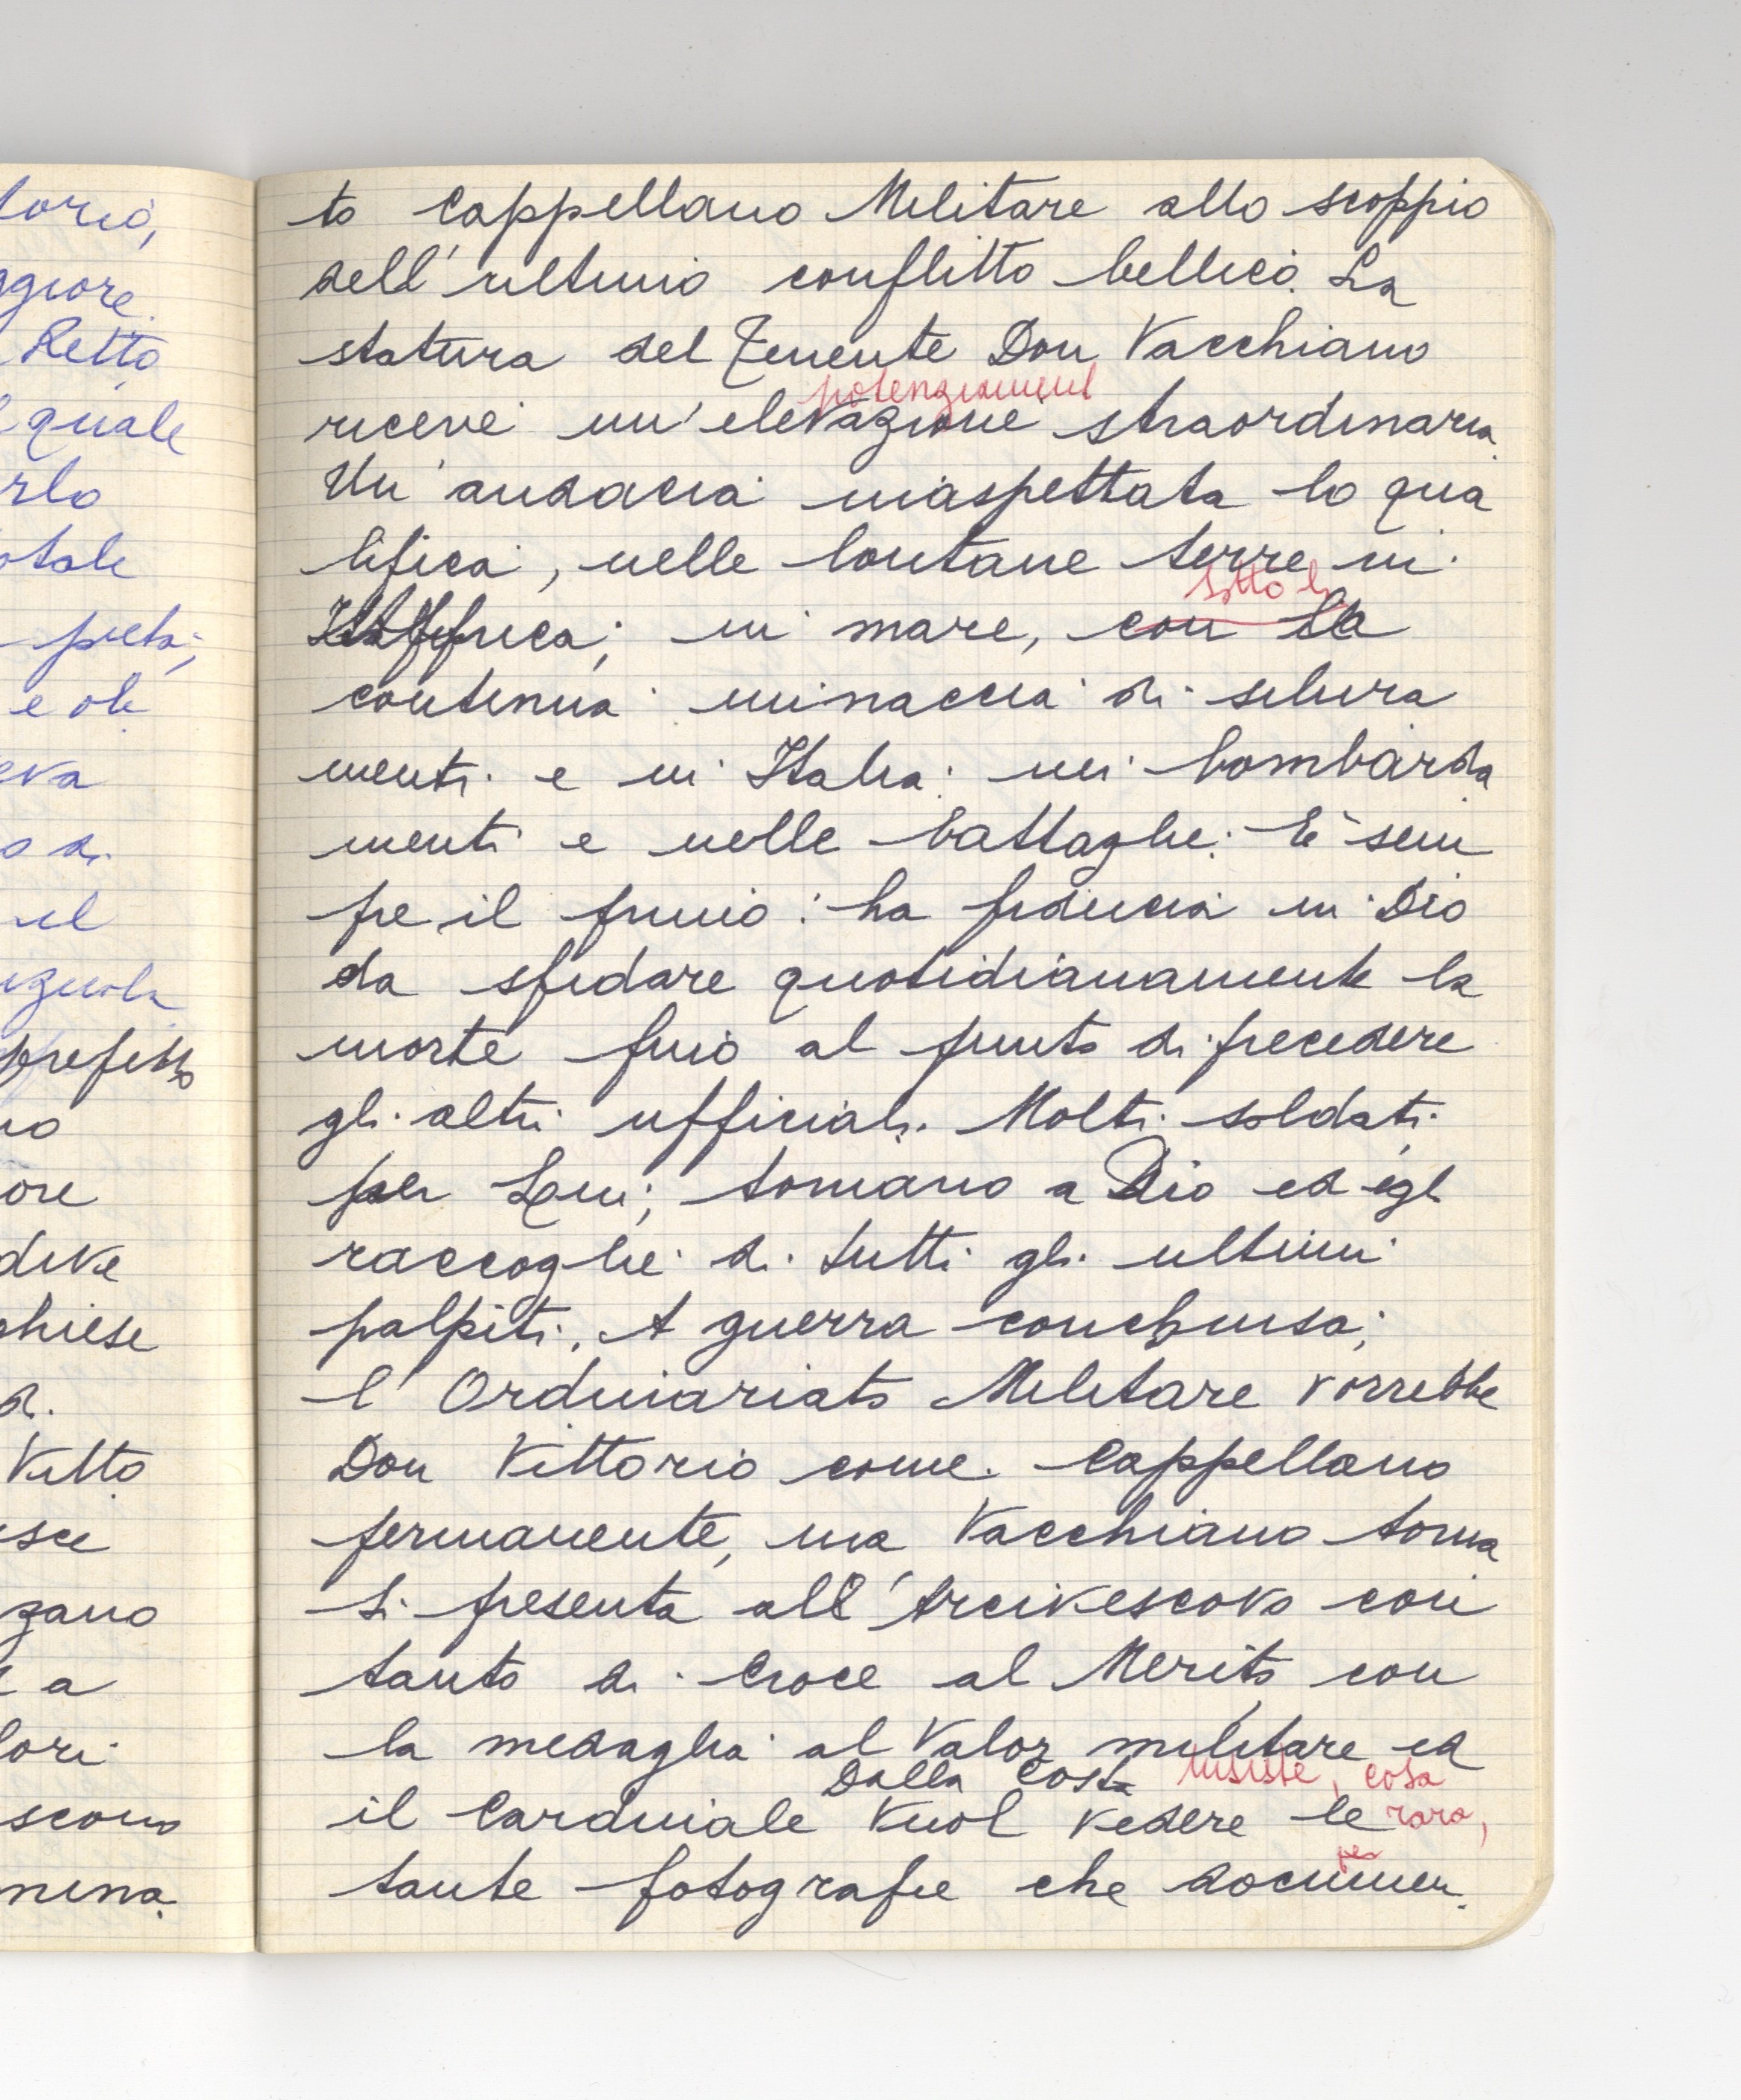 to Cappellano Militare allo scoppio
dell'ultimo conflitto bellico. La
statura del Tenente Don Vacchiano
potenziament
riceve un'elevazione straordinaria.
Un'audacia inaspettata lo qua
lifica, nelle lontane terre in
Affrica; in mare, con la
sotto la
continua minaccia di silura
menti e in Italia: nei bombarda
menti e nelle battaglie: È sem
pre il primo: ha fiducia in Dio
da sfidare quotidianamente la
morte fino al punto di precedere
gli altri ufficiali. Molti soldati
per Lui; tornano a Dio ed egli
raccoglie di tutti gli ultimi
palpiti. A guerra conchiusa;
l'Ordinariato Militare vorrebbe
Don Vittorio come Cappellano
permanente, ma Vacchiano torna
Si presenta all'Arcivescovo con
tanto di Croce al Merito, con
la medaglia al Valor militare ed
Dalla Costa insiste, cosa
il Cardinale vuol vedere le rara,
per
tante fotografie che documen.
torio,
ggiore
Retto
quale
rlo
otale
eva
o di
el
prefisso
no
ore
chiese
di
Vitto
isce
zano
a
lori
scono
mina.